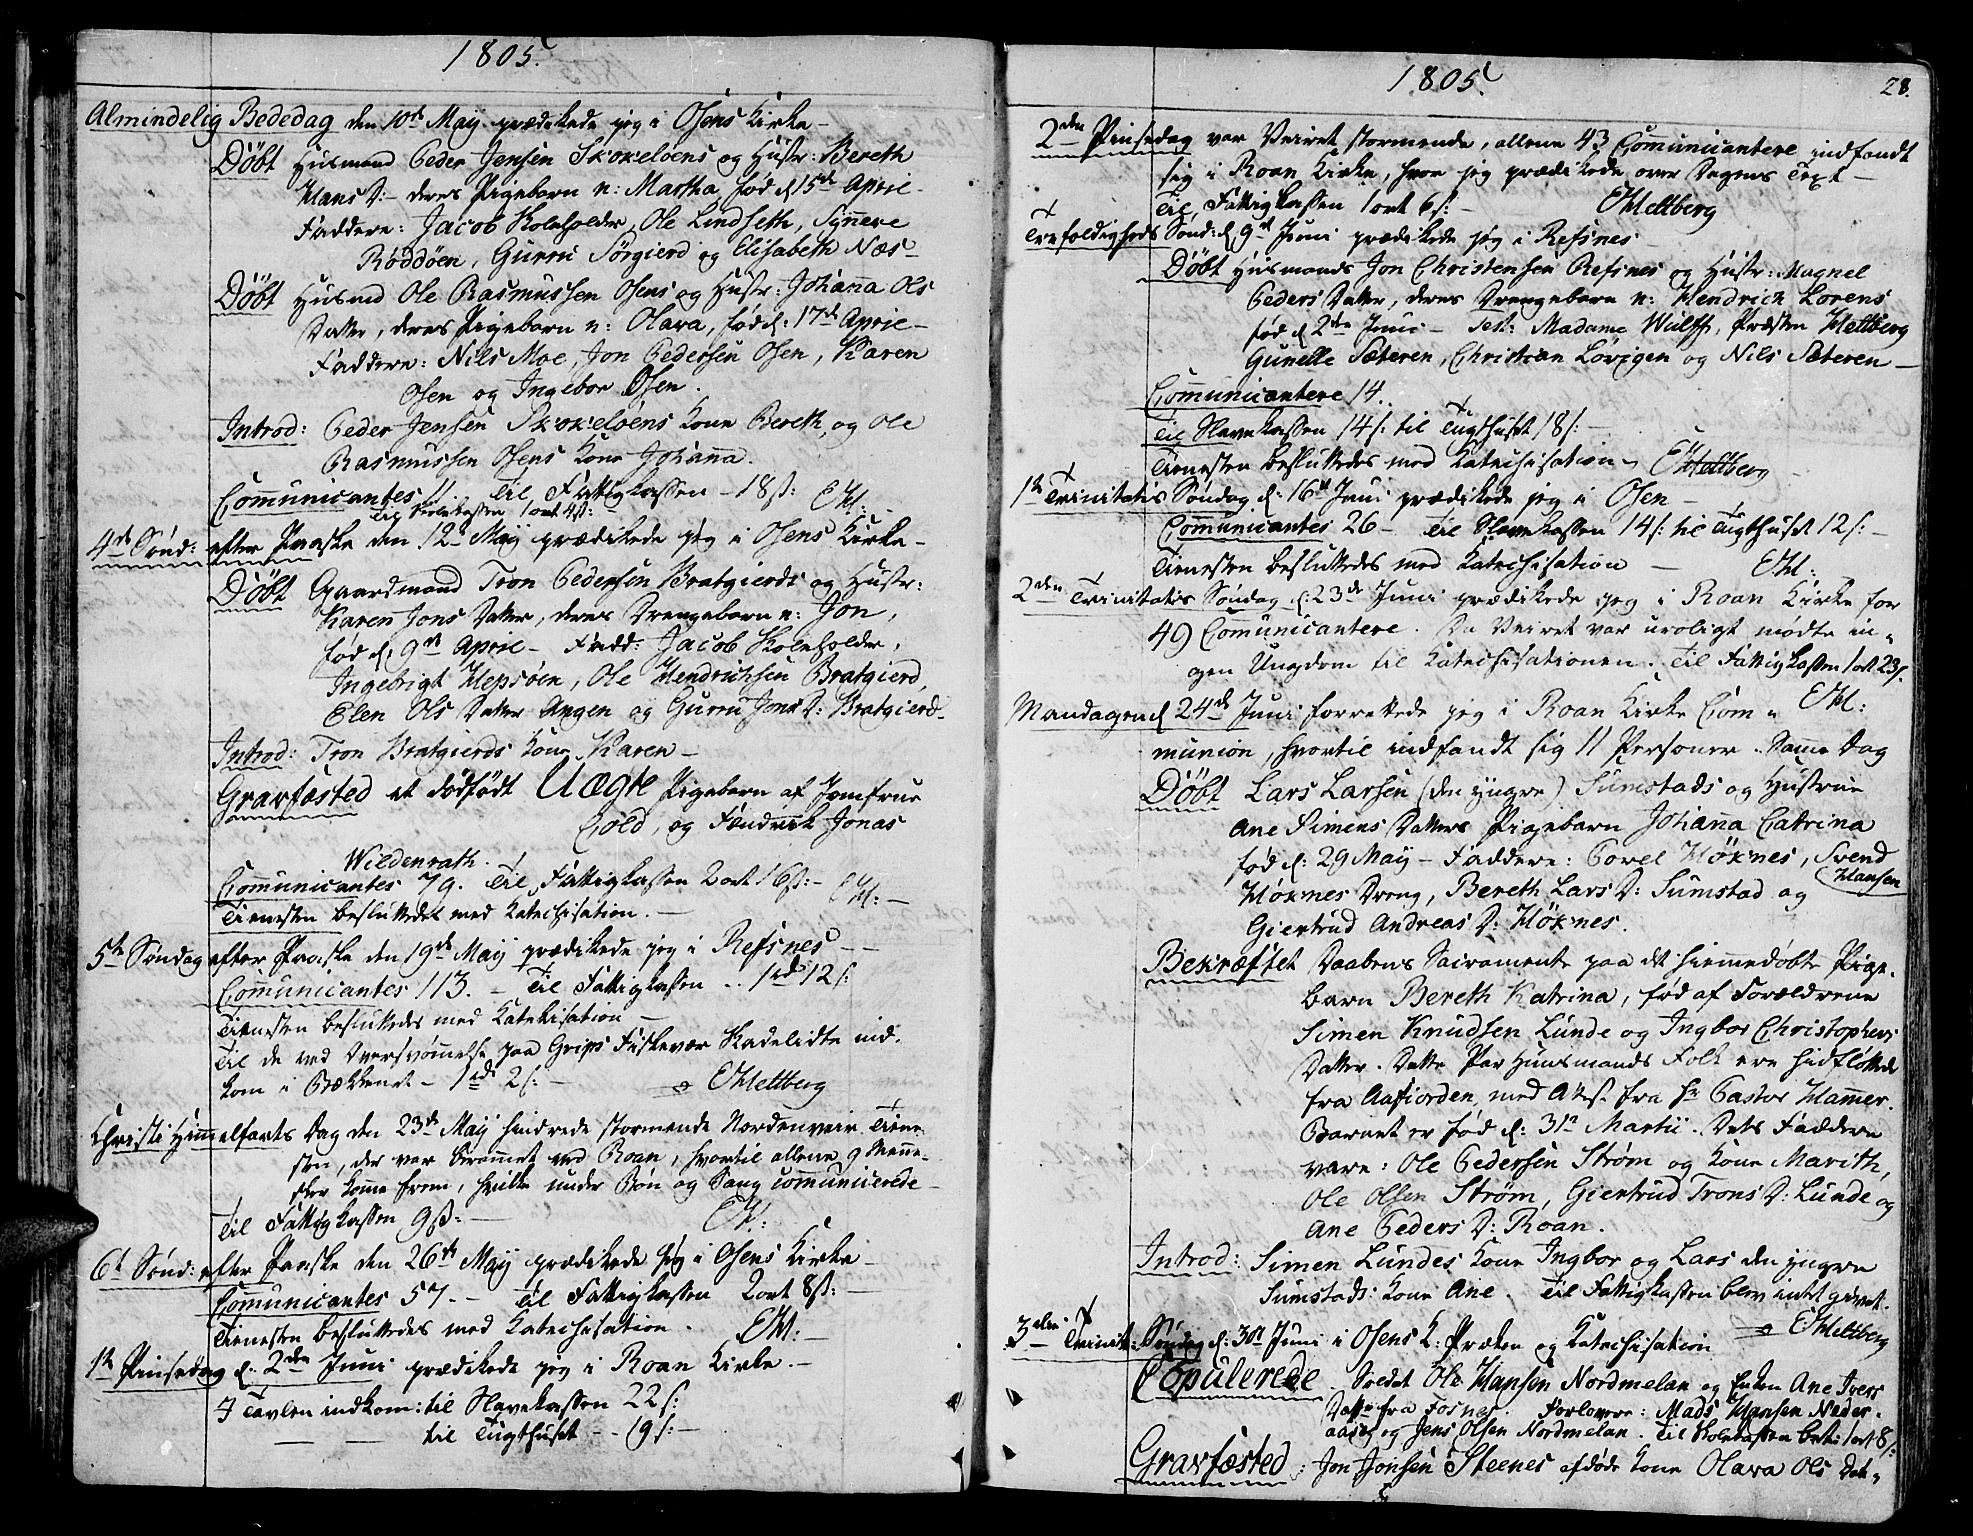 1805.
Almindelig Bededag den 10de Maij prædikede jeg i Osens Kirke -
Döbt Husmand Peder Jensen Skokeløens og Hustr: Bereth
Hans D: - deres Pigebarn n: Martha fød d 15de April -
Faddere: Jacob Skoleholder, Ole Lindseth, Synnere
Røddöen, Gurru Sørgierd og Elisabeth Næs -
Döbt Husmd Ole Rasmussen Osens og Hustr: Johanna Ols
Datter, deres Pigebarn n: Olava, fød d: 17de April -
Faddere: Nils Moe, Jon Pedersen Osen, Karen
Osen og Ingebor Osen.
Introd: Peder Jensen Skokeløens Kone Bereth, og Ole
Rasmussen Osens Kone Johanna.
Communicantes 11. Til Fattigkassen - 18 ß: EHl: -
Til Skolekassen 1 ort 4 ß:
4de Sönd: efter Paaske den 12 Maij prædikede jeg i Osens Kirke -
Döbt Gaardmand Tron Pedersen Bratgierds og Hustr:
Karen Jons Datter, deres Drengebarn n: Jon,
fød d. 9de April - Fadd: Jacob Skoleholder,
Ingebrigt Hepsöen, Ole Hendrichsen Bratgierd
Elen Ols Datter Angen og Gurru Jons D: Bratgierd -
Introd: Tron Bratgierds Kone Karen -
Gravfæsted et dødfödt Uægte Pigebarn af Jomfrue
Cold, og Fændrick Jonas
Wildenrath.
Communicantes 79. Til Fattigkassen 2 ort 16 ß: - EHl: -
Tienesten besluttedes med Katechisation. -
5te Søndag efter Paaske den 19de Maij prædikede jeg i Refsnes - -
Communicantes 113. - Til Fattigkassen .. 1 rd 12 ß
Tienesten besluttedes med Katekisation -
Til de ved Oversvømmelse paa Grips Fiskevær Skadelidte ind-
kom i Bækkenet - 1 rd 2 ß: - EHlettberg
Christi Himmelfarts Dag den 23de Maij hindrede stormende Nordenveir Tiene-
sten, der var berammet ved Roan, hvortil allene 9 Menne-
sker komme frem, hvilke under Bön og Sang communicerede -
Til Fattigkassen 9 ß: - EHl:
6te Sönd: efter Paaske den 26de Maij prædikede jeg i Osens Kirke -
Communicantes 57. - Til Fattigkassen 2 ort 8 ß: -
Tienesten besluttedes med Katechisation. EHl: -
1te Pinsedag d. 2den Junii prædikede jeg i Roan Kirke. -
I Tavlen indkom: til Slavekassen 22 ß:
— — til Tugthuset - - 19 ß: -
1805.
28.
2den Pinsedag var Veiret stormende, allene 43 Communicantere indfandt
sig i Roan Kirke, hvor jeg prædikede over Dagens Text -
Til Fattigkassen 1 ort 6 ß: - EHlettberg
Trefoldigheds Sönd: d, 9de Junii prædikede jeg i Refsnes
Döbt Husmands Jon Christensen Refsnes og Hustr: Magnel
Peders Datter, deres Drengebarn n: Hendrich Lorens
fød d 2den Junii - Test: Madame Wulff, Præsten Hettberg
Gunelle Sæteren, Christian Lövigen og Nils Sæteren -
Communicantere 14.
Til Slavekassen 14 ß: til Tugthuset 18 ß: -
Tienesten besluttedes med Katechisation EHlettberg -
1te Trinitatis Søndag d: 16de Junii prædikede jeg i Osen -
Communicantes 26 - Til Slavekassen 14 ß: til Tugthuset 12 ß: -
Tienesten besluttedes med Katechisation - EHl:
2den Trinitatis Søndag d: 23de Junii prædikede jeg i Roan Kirke for
49 Communicantere. Da Veiret var uroligt mødte in-
gen Ungdom til Katechisationen. Til Fattigkassen 1 ort 23 ß.
EHl:
Mandagen d 24de Junii forrettede jeg i Roan Kirke Com-
munion, hvortil indfandt sig 11 Personer. Samme Dag
Döbt Lars Larsen (den yngre) Sumstads og Hustrue
Ane Simens Datters Pigebarn Johanna Catrina
fød d: 29 Maij - Faddere: Povel Höknes, Svend
Hansen
Höknes Dreng, Bereth Lars D: Sumstad og
Giertrud Andreas D: Höknes.
Bekræftet Daabens Sacramente paa det hiemmedöbte Pige-
barn Bereth Katrina, fød af Forældrene
Simen Knudsen Lunde og Ingbor Christophers
Datter. Dette Par Huusmands Folk ere hidflöttede
fra Aafiorden med Atest fra Hr Pastor Hammer.
Barnet er fød d: 31te Martii. Dets Faddere
vare: Ole Pedersen Strøm og Kone Marith,
Ole Olsen Strøm, Giertrud Trons D: Lunde og
Ane Peders D: Roan.
Introd: Simen Lundes Kone Ingbor og Lars den yngre
Sumstads: Kone Ane. Til Fattigkassen blev intet givet.
EHlettberg
3den Trinit: Søndag d. 30te Junii i Osens K: Præken og Katechisation
Copulerede Soldat Ole Hansen Nordmelan og Enken Ane Ivers
Datter fra Fosnes. Forlovere: Mads Hansen Neder-
aased og Jens Olsen Nordmelan. Til Skolekassen bet: 1 ort 8 ß:
Gravfæsted: Jon Jonsen Steenes afdøde Kone Olava Ols Dat-